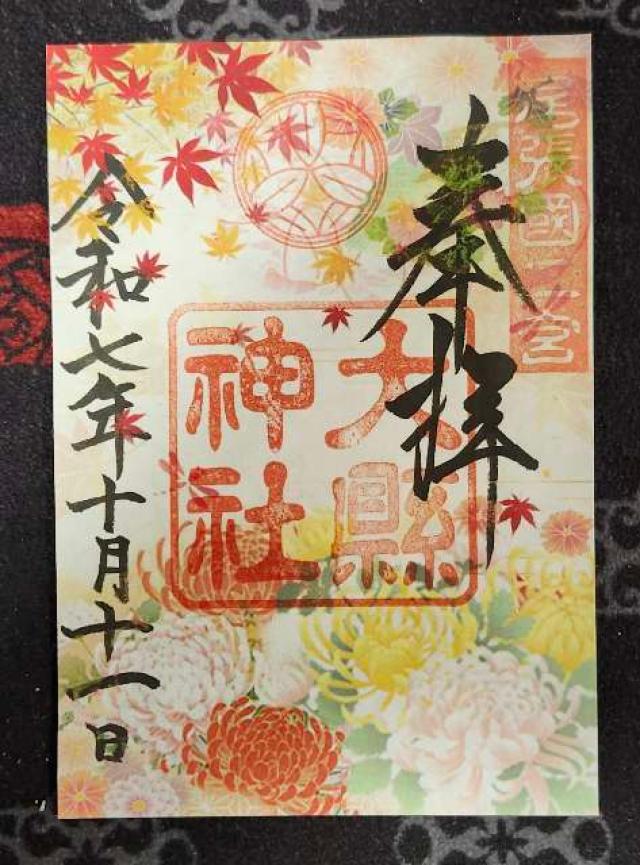 尾張國二宮
奉拝
大縣
神社
令和七年十月十一日